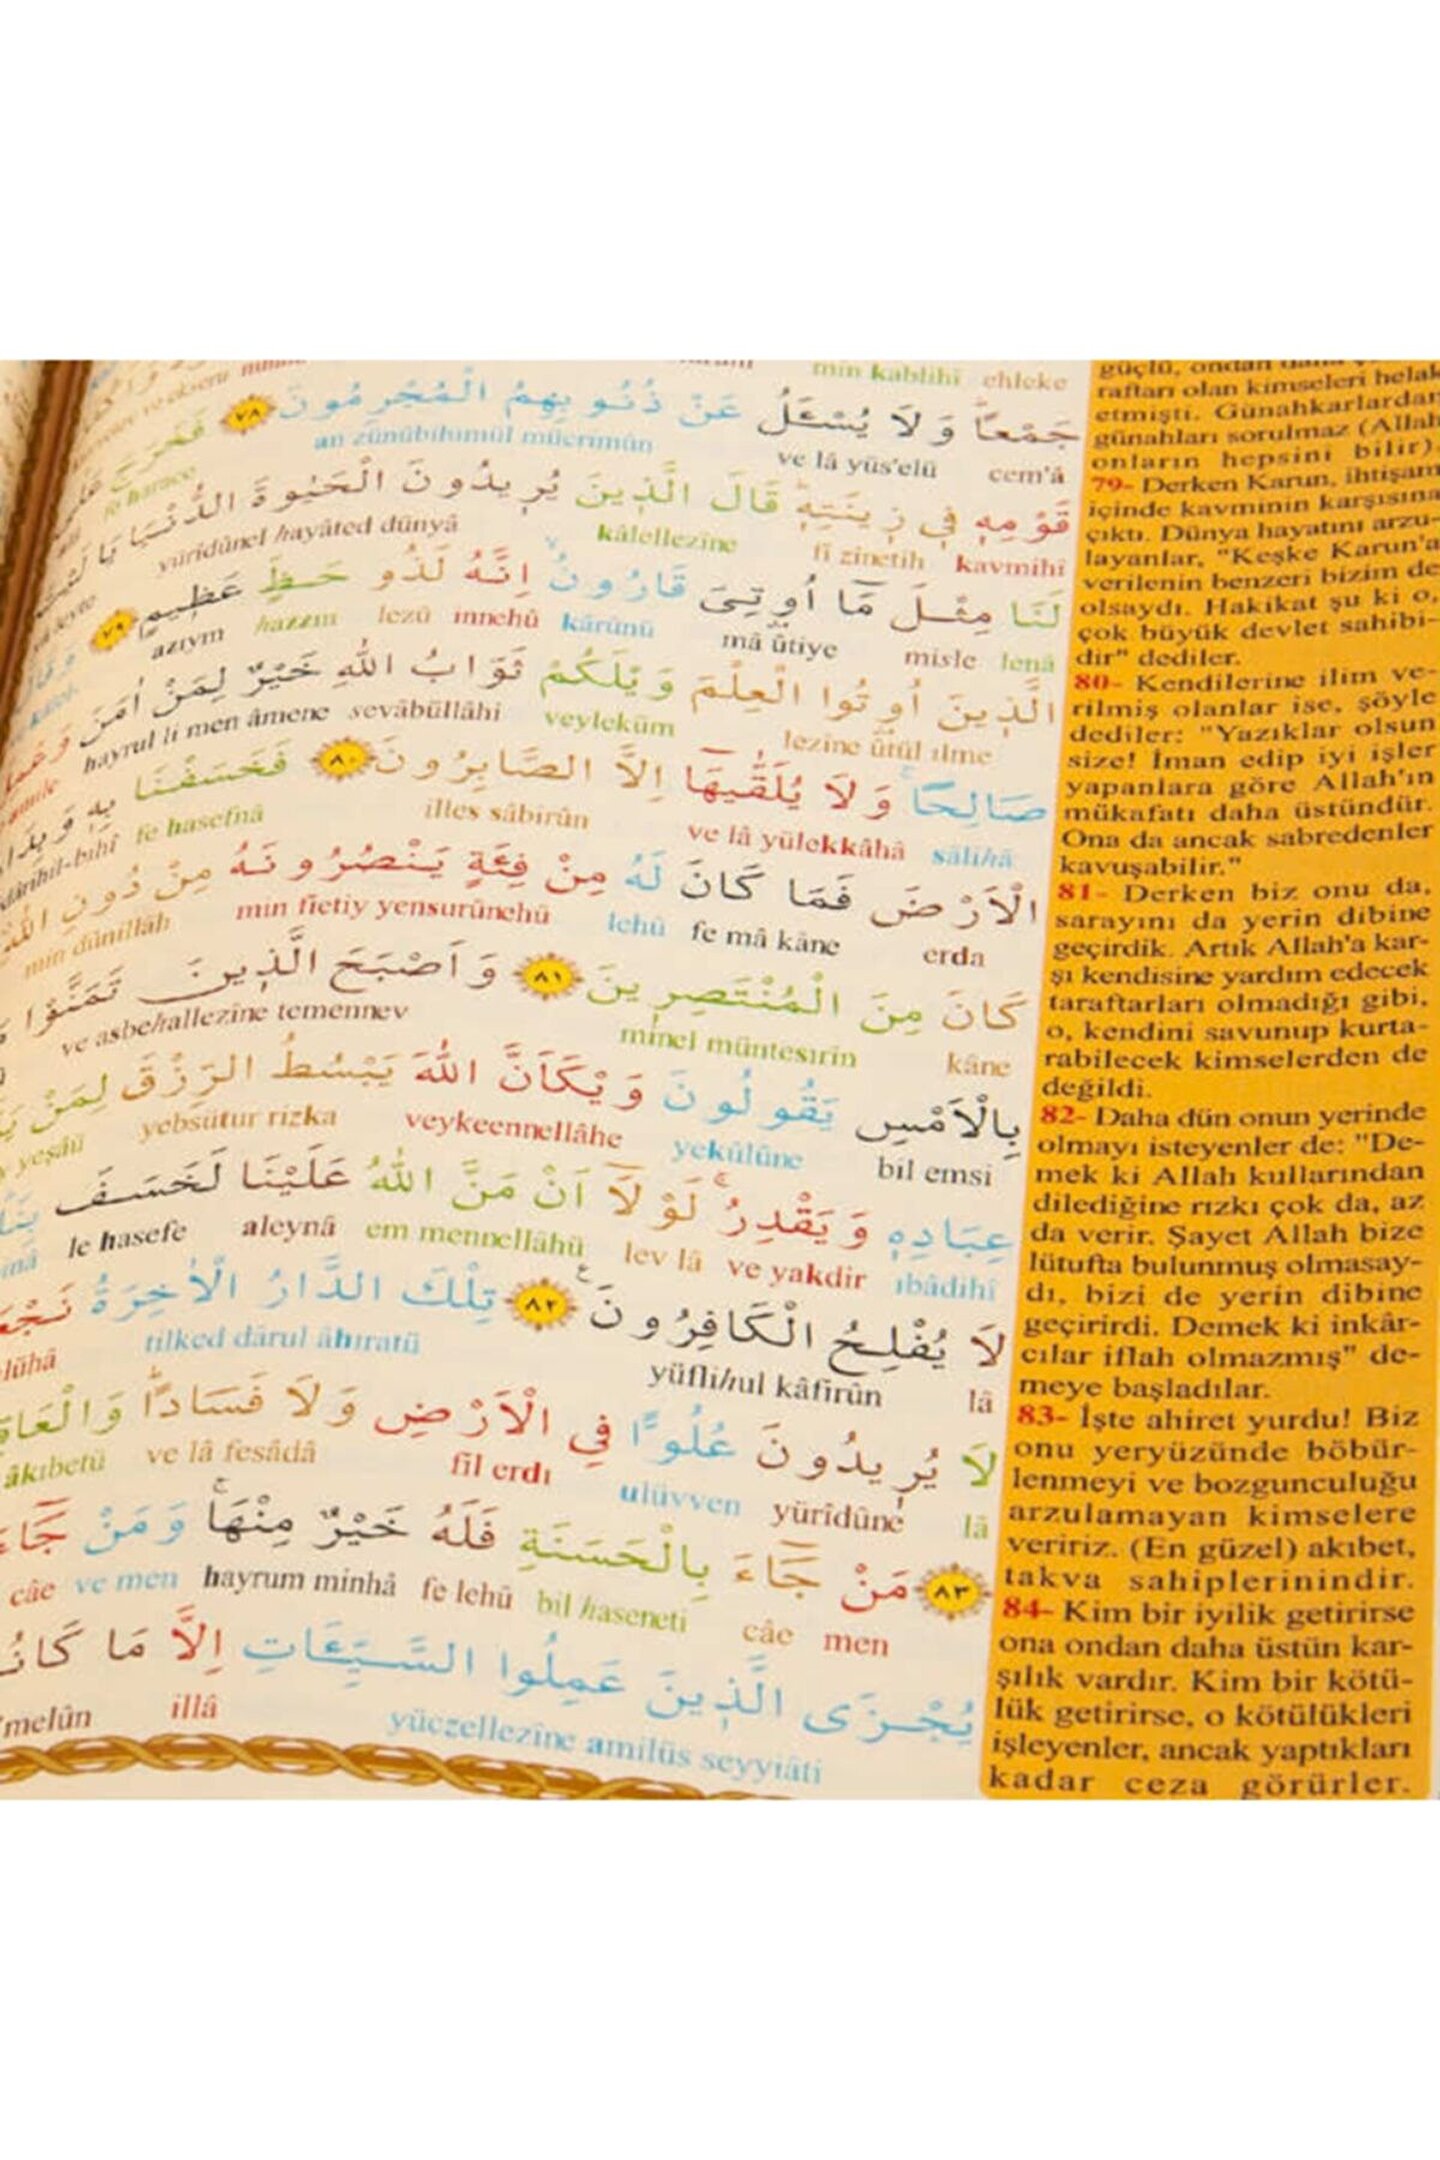 min kablihî ehleke
جَمْعًا وَلَا يُسْـَٔلُ عَنْ ذُنُوبِهِمُ الْمُجْرِمُونَ ٧٨ فَخَرَجَ
cem'â ve lâ yüs'elü an zünûbihimül mücrimûn fe harace
قَوْمِهٖ فٖي زٖينَتِهٖ قَالَ الَّذٖينَ يُرٖيدُونَ الْحَيٰوةَ الدُّنْيَا يَا لَيْتَ
kavmihî fî zînetih kâlellezîne yürîdûnel hayâted dünyâ
لَنَا مِثْلَ مَٓا اُو۫تِيَ قَارُونُ اِنَّهُ لَذُو حَظٍّ عَظٖيمٍ ٧٩
lenâ misle mâ ûtiye kârûnü innehû lezû hazzın azıym
الَّذٖينَ اُو۫تُوا الْعِلْمَ وَيْلَكُمْ ثَوَابُ اللّٰهِ خَيْرٌ لِمَنْ اٰمَنَ وَعَمِلَ
lezîne ûtül ılme veyleküm sevâbüllâhi hayrul li men âmene
صَالِحًا وَلَا يُلَقّٰيهَٓا اِلَّا الصَّابِرُونَ ٨٠ فَخَسَفْنَا بِهٖ وَبِدَارِ
sâlihâ ve lâ yülekkâhâ illes sâbirûn fe hasefnâ
الْاَرْضَ فَمَا كَانَ لَهُ مِنْ فِئَةٍ يَنْصُرُونَهُ مِنْ دُونِ اللّٰهِ
erda fe mâ kâne lehû min fietiy yensurûnehû min dûnillâh
كَانَ مِنَ الْمُنْتَصِرٖينَ ٨١ وَاَصْبَحَ الَّذٖينَ تَمَنَّوْا
kâne minel müntesırîn ve asbehallezîne temennev
بِالْاَمْسِ يَقُولُونَ وَيْكَاَنَّ اللّٰهَ يَبْسُطُ الرِّزْقَ لِمَنْ
bil emsi yekûlûne veykeennellâhe yebsütur rizka yeşâü
عِبَادِهٖ وَيَقْدِرُ لَوْلَٓا اَنْ مَنَّ اللّٰهُ عَلَيْنَا لَخَسَفَ
ıbâdihî ve yakdir lev lâ em mennellâhü aleynâ le hasefe
لَا يُفْلِحُ الْكَافِرُونَ ٨٢ تِلْكَ الدَّارُ الْاٰخِرَةُ
lâ yüflihul kâfirûn tilked dârul âhıratü
لَا يُرٖيدُونَ عُلُوًّا فِي الْاَرْضِ وَلَا فَسَادًا
lâ yürîdûne ulüvven fil erdı ve lâ fesâdâ âkıbetü
٨٣ مَنْ جَٓاءَ بِالْحَسَنَةِ فَلَهُ خَيْرٌ مِنْهَا وَمَنْ جَٓاءَ
men câe bil haseneti fe lehû hayrum minhâ ve men câe
يُجْزَى الَّذٖينَ عَمِلُوا السَّيِّـَٔاتِ اِلَّا مَا
yüczellezîne amilüs seyyiâti illâ
güçlü, ondan daha
rafları olan kimseleri helak
etmişti. Günahkarlardan
günahları sorulmaz (Allah
onların hepsini bilir).
79- Derken Karun, ihtişam
içinde kavminin karşısına
çıktı. Dünya hayatını arzu-
layanlar, "Keşke Karun'a
verilenin benzeri bizim de
olsaydı. Hakikat şu ki o,
çok büyük devlet sahibi-
dir" dediler.
80- Kendilerine ilim ve-
rilmiş olanlar ise, şöyle
dediler: "Yazıklar olsun
size! İman edip iyi işler
yapanlara göre Allah'ın
mükafatı daha üstündür.
Ona da ancak sabredenler
kavuşabilir."
81- Derken biz onu da,
sarayını da yerin dibine
geçirdik. Artık Allah'a kar-
şı kendisine yardım edecek
taraftarları olmadığı gibi,
o, kendini savunup kurta-
rabilecek kimselerden de
değildi.
82- Daha dün onun yerinde
olmayı isteyenler de: "De-
mek ki Allah kullarından
dilediğine rızkı çok da, az
da verir. Şayet Allah bize
lütufta bulunmuş olmasay-
dı, bizi de yerin dibine
geçirirdi. Demek ki inkâr-
cılar iflah olmazmış" de-
meye başladılar.
83- İşte ahiret yurdu! Biz
onu yeryüzünde böbür-
lenmeyi ve bozgunculuğu
arzulamayan kimselere
veririz. (En güzel) akıbet,
takva sahiplerinindir.
84- Kim bir iyilik getirirse
ona ondan daha üstün kar-
şılık vardır. Kim bir kötü-
lük getirirse, o kötülükleri
işleyenler, ancak yaptıkları
kadar ceza görürler.